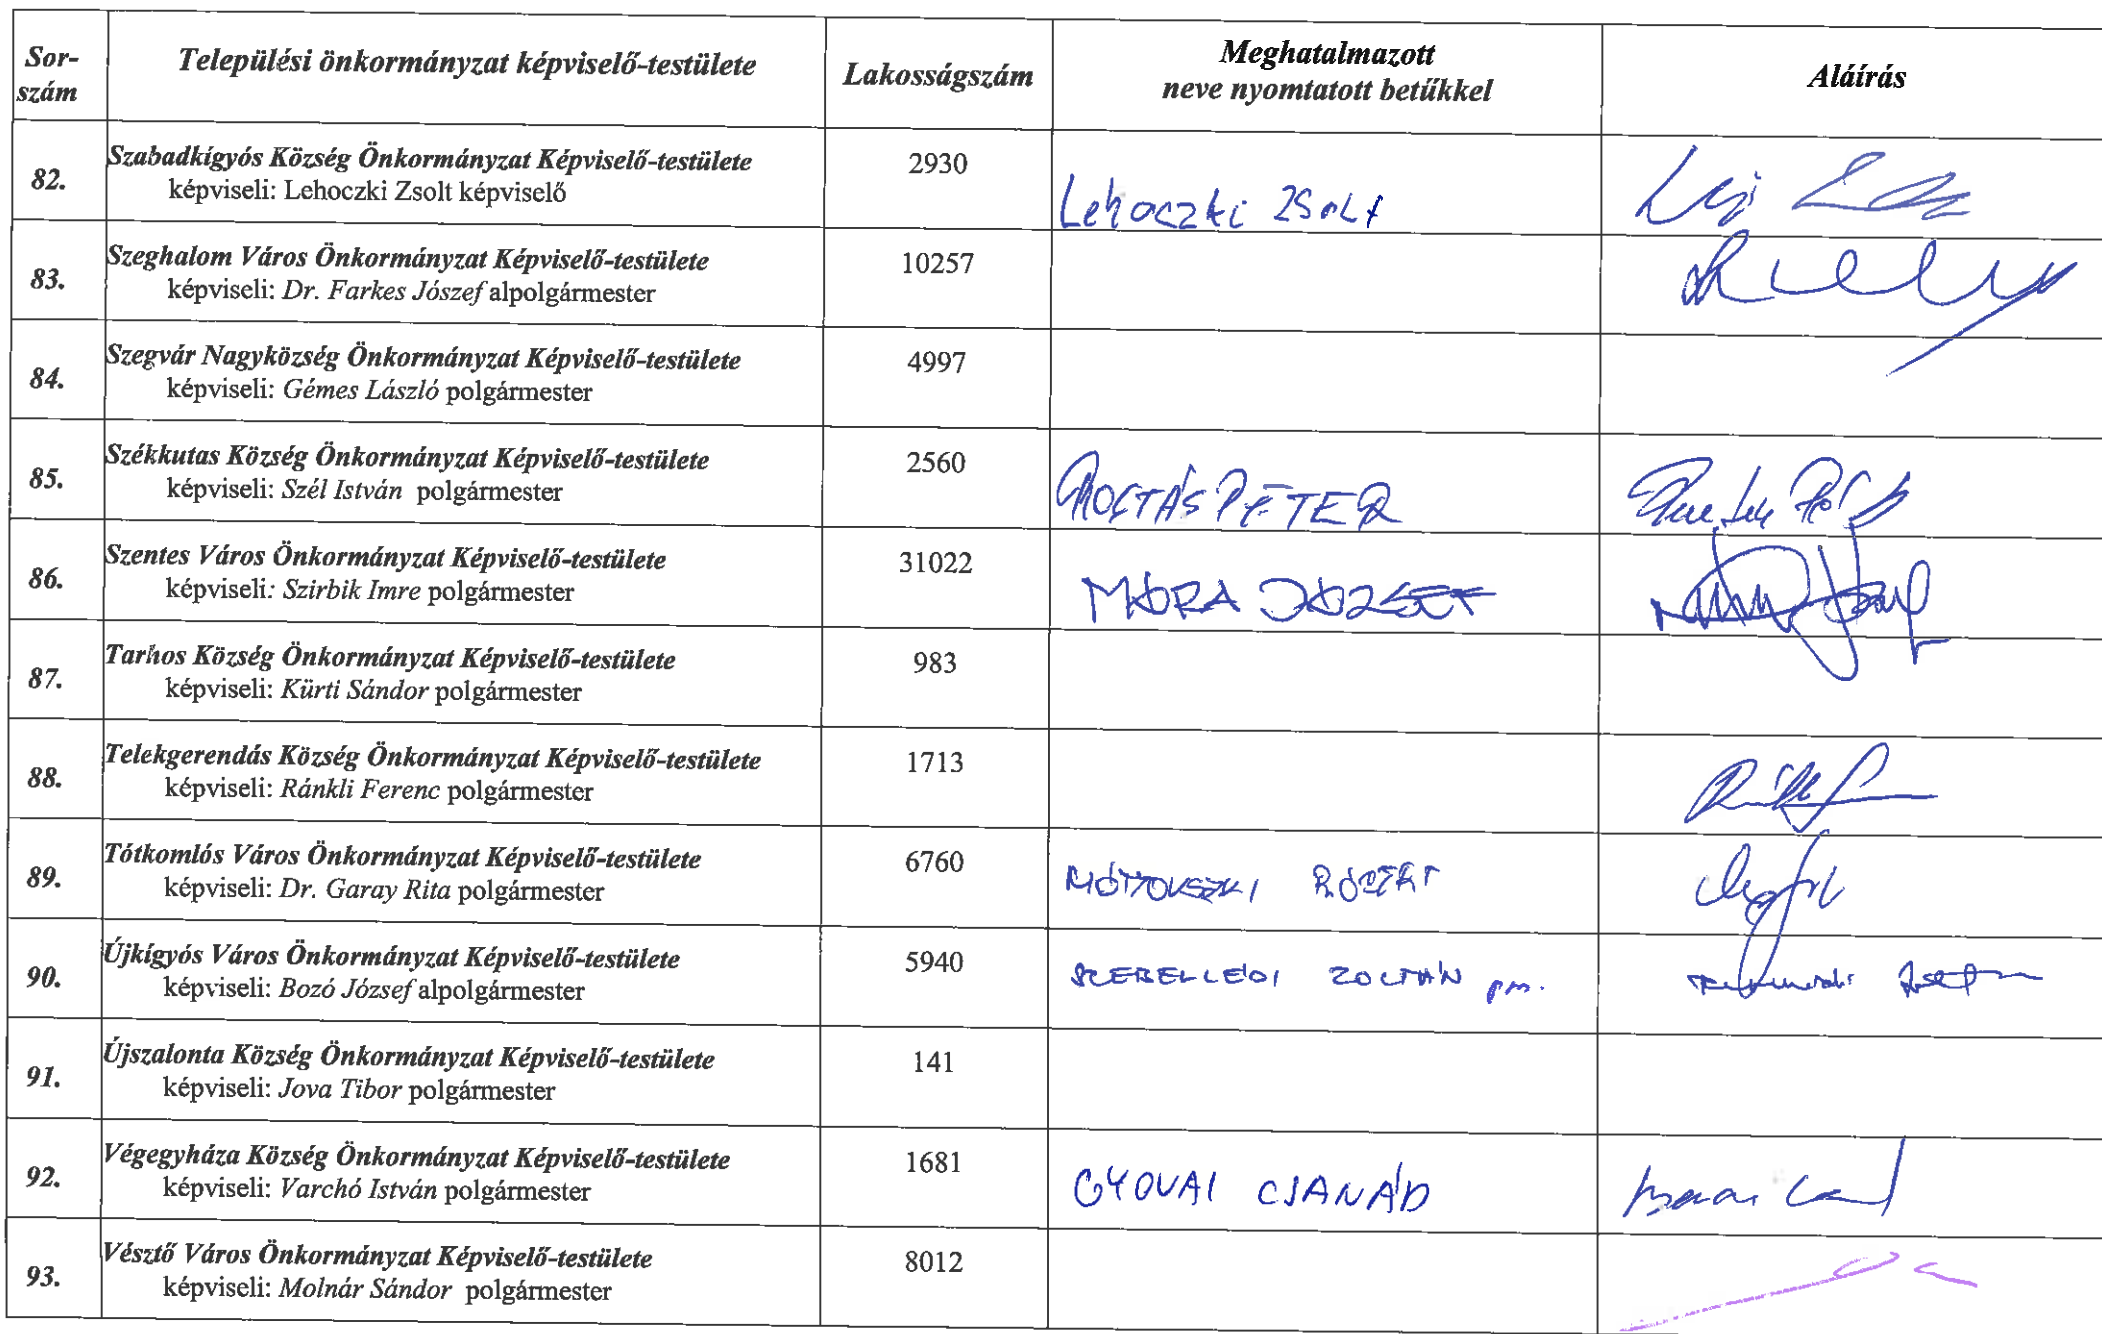 Sor-
szám
Települési önkormányzat képviselő-testülete
Lakosságszám
Meghatalmazott
neve nyomtatott betűkkel
Aláírás
82.
Szabadkígyós Község Önkormányzat Képviselő-testülete
képviseli: Lehoczki Zsolt képviselő
2930
Lehoczki Zsolt
83.
Szeghalom Város Önkormányzat Képviselő-testülete
képviseli: Dr. Farkes Jószef alpolgármester
10257
84.
Szegvár Nagyközség Önkormányzat Képviselő-testülete
képviseli: Gémes László polgármester
4997
85.
Székkutas Község Önkormányzat Képviselő-testülete
képviseli: Szél István polgármester
2560
PÉTER
86.
Szentes Város Önkormányzat Képviselő-testülete
képviseli: Szirbik Imre polgármester
31022
MÓRA JÓZSEF
87.
Tarhos Község Önkormányzat Képviselő-testülete
képviseli: Kürti Sándor polgármester
983
88.
Telekgerendás Község Önkormányzat Képviselő-testülete
képviseli: Ránkli Ferenc polgármester
1713
89.
Tótkomlós Város Önkormányzat Képviselő-testülete
képviseli: Dr. Garay Rita polgármester
6760
90.
Újkígyós Város Önkormányzat Képviselő-testülete
képviseli: Bozó József alpolgármester
5940
SZEBELLÉDI ZOLTÁN pm.
91.
Újszalonta Község Önkormányzat Képviselő-testülete
képviseli: Jova Tibor polgármester
141
92.
Végegyháza Község Önkormányzat Képviselő-testülete
képviseli: Varchó István polgármester
1681
GYOVAI CSANÁD
93.
Vésztő Város Önkormányzat Képviselő-testülete
képviseli: Molnár Sándor polgármester
8012